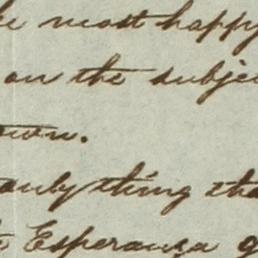 be most happy
on the subje
own.
only thing tha
Esperanza g